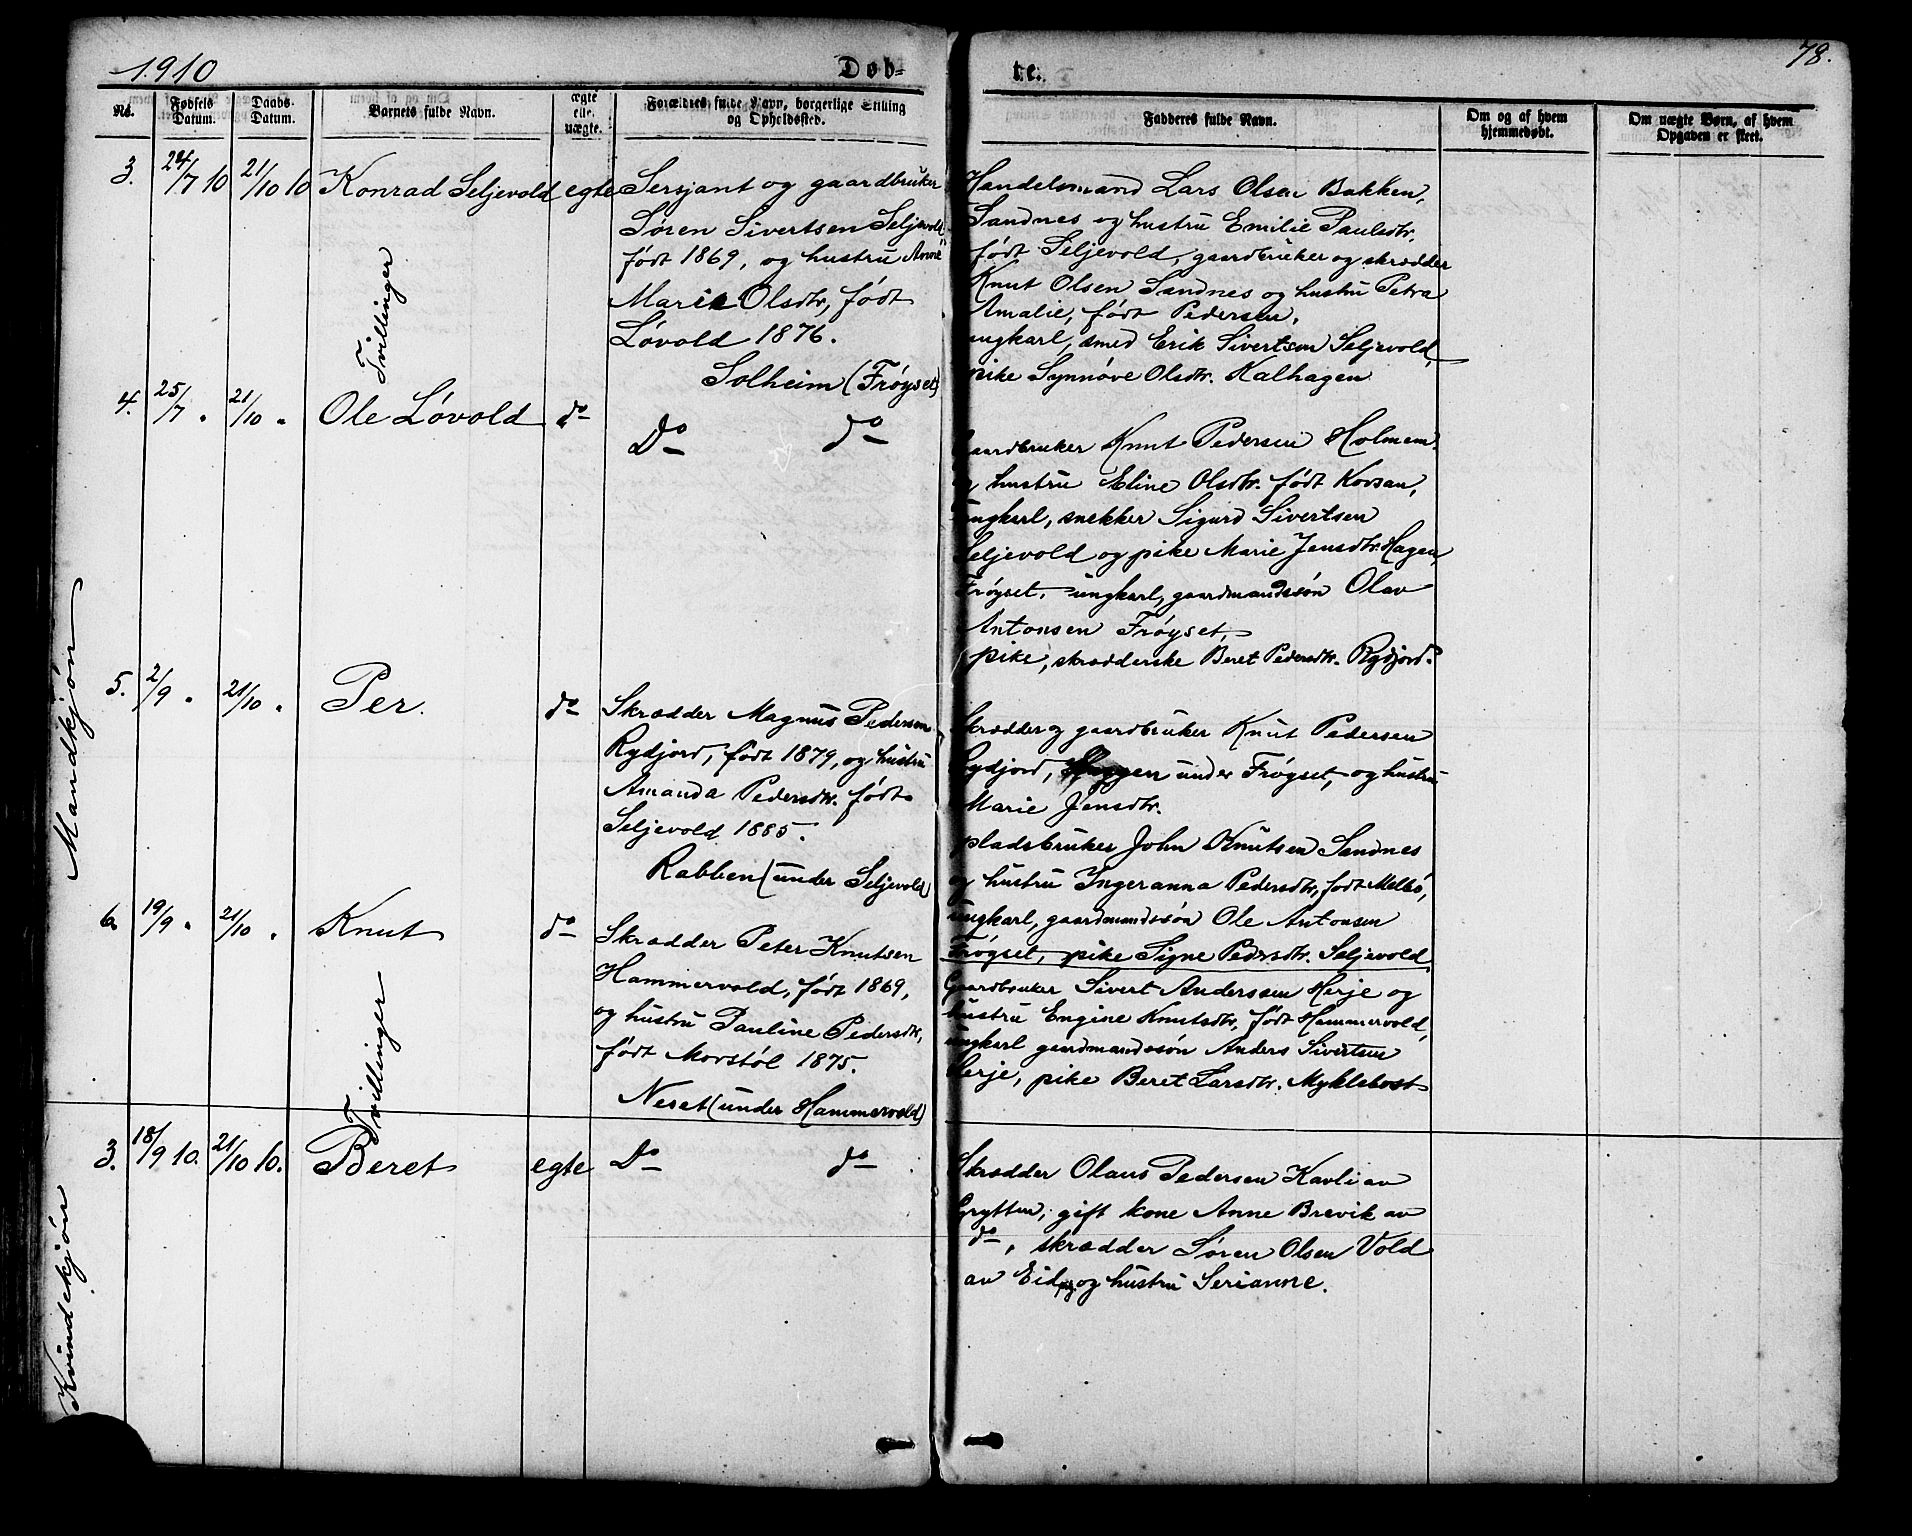 1910 Døb- te. 78.
No. Fødsels Datum. Daabs- Datum. Barnets fulde Navn. ægte eller uægte. Forældres fulde Navn, borgerlige Stilling og Opholdssted. Fadderes fulde Navn. Om og af hvem hjemmedøbt. Om uægte Børn, af hvem Opgaven er skeet.
Mandkjøn
3. 24/7 10 21/10 10 Konrad Seljevold egte
Tvillinger
Sersjant og gaardbruker
Søren Sivertsen Seljevold,
født 1869, og hustru Anne
Marie Olsdtr, født
Løvold 1876.
Solheim (Frøyset)
Handelsmand Lars Olsen Bakken,
Sandnes og hustru Emilie Paulsdtr.
født Seljevold, gaardbruker og skrædder
Knut Olsen Sandnes og hustru Petra
Amalie, født Pedersen,
ungkarl, smed Erik Sivertsen Seljevold,
pike Synnøve Olsdtr. Kalhagen
4. 25/7 " 21/10 " Ole Løvold do
Do do
Gaardbruker Knut Pedersen Holmem
og hustru Eline Olsdtr. født Korsan,
ungkarl, snekker Sigurd Sivertsen
Seljevold og pike Marie Jensdtr. Hagen,
Frøyset. ungkarl, gaardmandssøn Olav
Antonsen Frøyset,
pike, skrædderske Beret Pedersdtr. Rydjord.
5. 2/9 " 21/10 " Per. do
Skrædder Magnus Pedersen
Rydjord, født 1879, og hustru
Amanda Pedersdtr. født
Seljevold 1885.
Rabben (under Seljevold)
Skrædder og gaardbruker Knut Pedersen
Rydjord, under Frøyset, og hustru
Marie Jensdtr.
pladsbruker John Knutsen Sandnes
og hustru Ingeranna Pedersdtr, født Melbø,
ungkarl, gaardmandssøn Ole Antonsen
Frøyset, pike Signe Pedersdtr. Seljevold
6. 19/9 " 21/10 " Knut do
Tvillinger
Skrædder Peter Knutsen
Hammervold, født 1869,
og hustru Pauline Pedersdtr,
født Morstøl 1875.
Neset (under Hammervold)
Gaardbruker Sivert Anderssen Herje og
hustru Engine Knutsdtr, født Hammervold,
ungkarl gaardmandssøn Anders Sivertsen
Herje, pike Beret Larsdtr. Myklebost
Kvindekjøn
3. 18/9 10. 21/10 10. Beret egte
Do do
Skrædder Olaus Pedersen Kavli av
Grytten, gift kone Anne Brevik av
do, skrædder Søren Olsen Vold
av Eid og hustru Serianne.